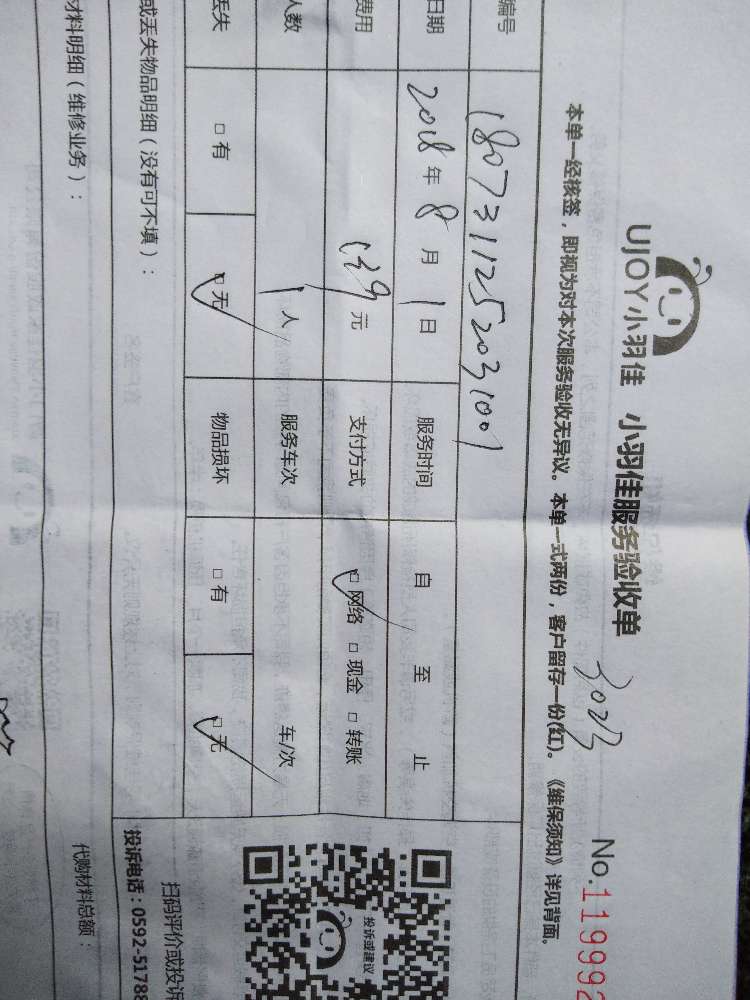 UJOY小羽佳 小羽佳服务验收单
No.119992
本单一经核签，即视为对本次服务验收无异议。本单一式两份，客户留存一份(红)。《维保须知》详见背面。
编号 180731125203100
日期 2018年8月1日 服务时间 自 至 止
费用 元 支付方式 □网络 □现金 □转账
人数 1人 服务车次 车/次
丢失 □有 □无 物品损坏 □有 □无
或丢失物品明细（没有可不填）：
材料明细（维修业务）：
代购材料总额：
投诉或建议
扫码评价或投诉
投诉电话：0592-51788